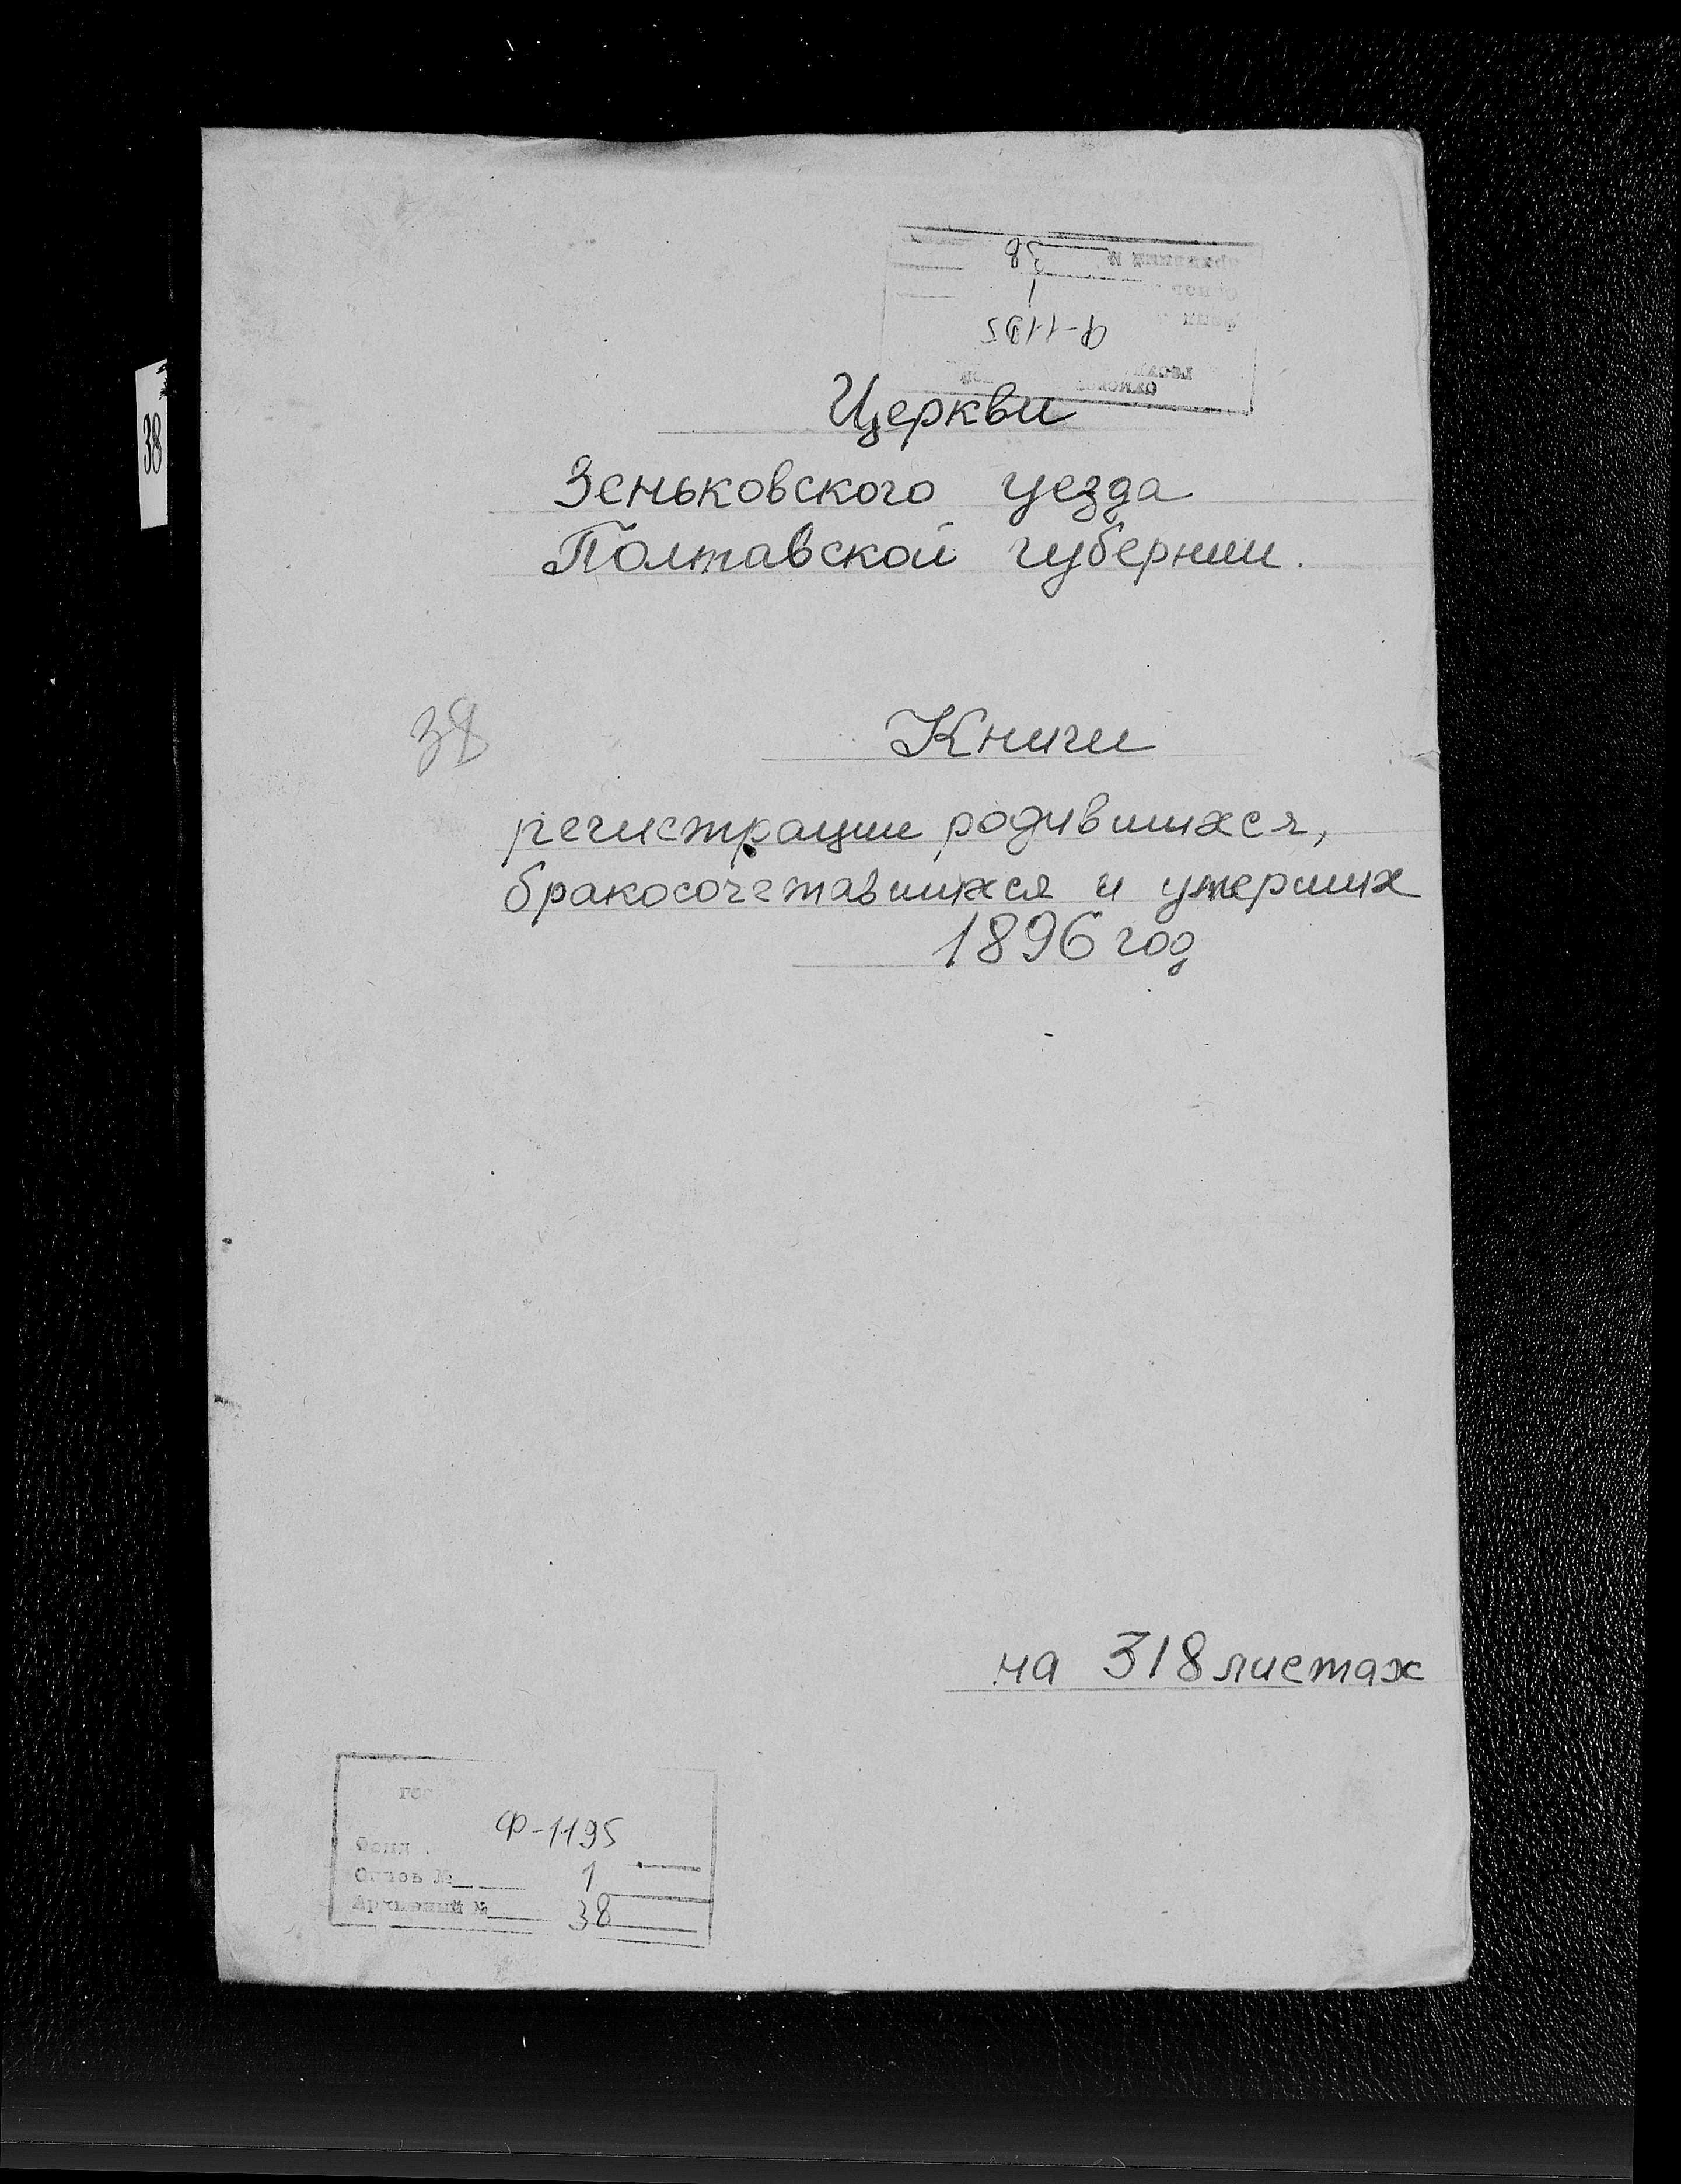 38
Ф-1195
1
38
Церкви
Зеньковского уезда
Полтавской губернии.
38
Книги
регистрации родившихся,
бракосочетавшихся и умерших
1896 год
на 318 листах
Ф-1195
Фонд
Опись № 1
Архивный № 38